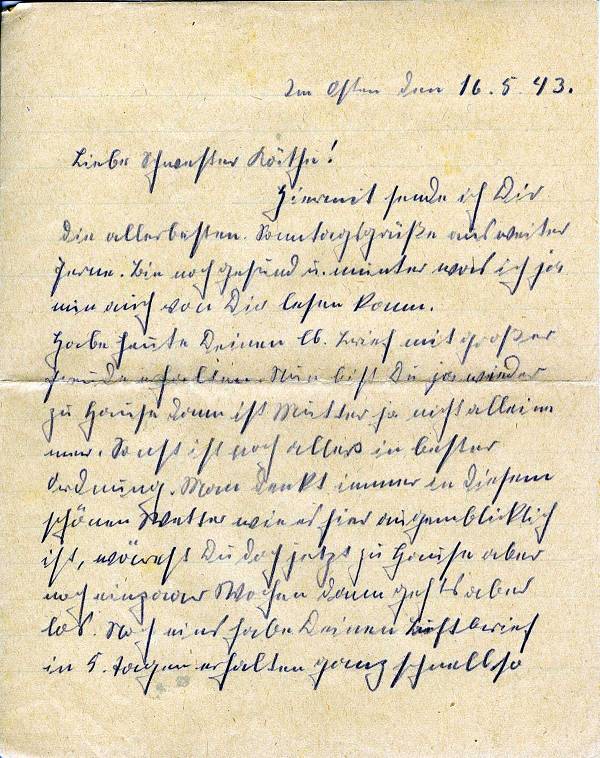 Im Osten den 16.5.43.
Liebe Schwester Käthe!
Hiermit sende ich Dir
die allerbesten Sonntagsgrüße aus weiter
Ferne. Bin noch gesund u. munter was ich ja
nun auch von Dir lesen kann.
Habe heute Deinen lb. Brief mit großer
Freude erhalten. Nun bist Du ja wieder
zu Hause dann ist Mutter ja nicht allein
mer. Sonst ist noch alles in bester
Ordnung. Man denkt immer in diesem
schönen Wetter wie es hier augenblicklich
ist, wärest Du doch jetzt zu Hause aber
noch ein paar Wochen dann gehts aber
los. Noch eins habe Deinen Luftbrief
in 5. tagen erhalten ganz schnell so